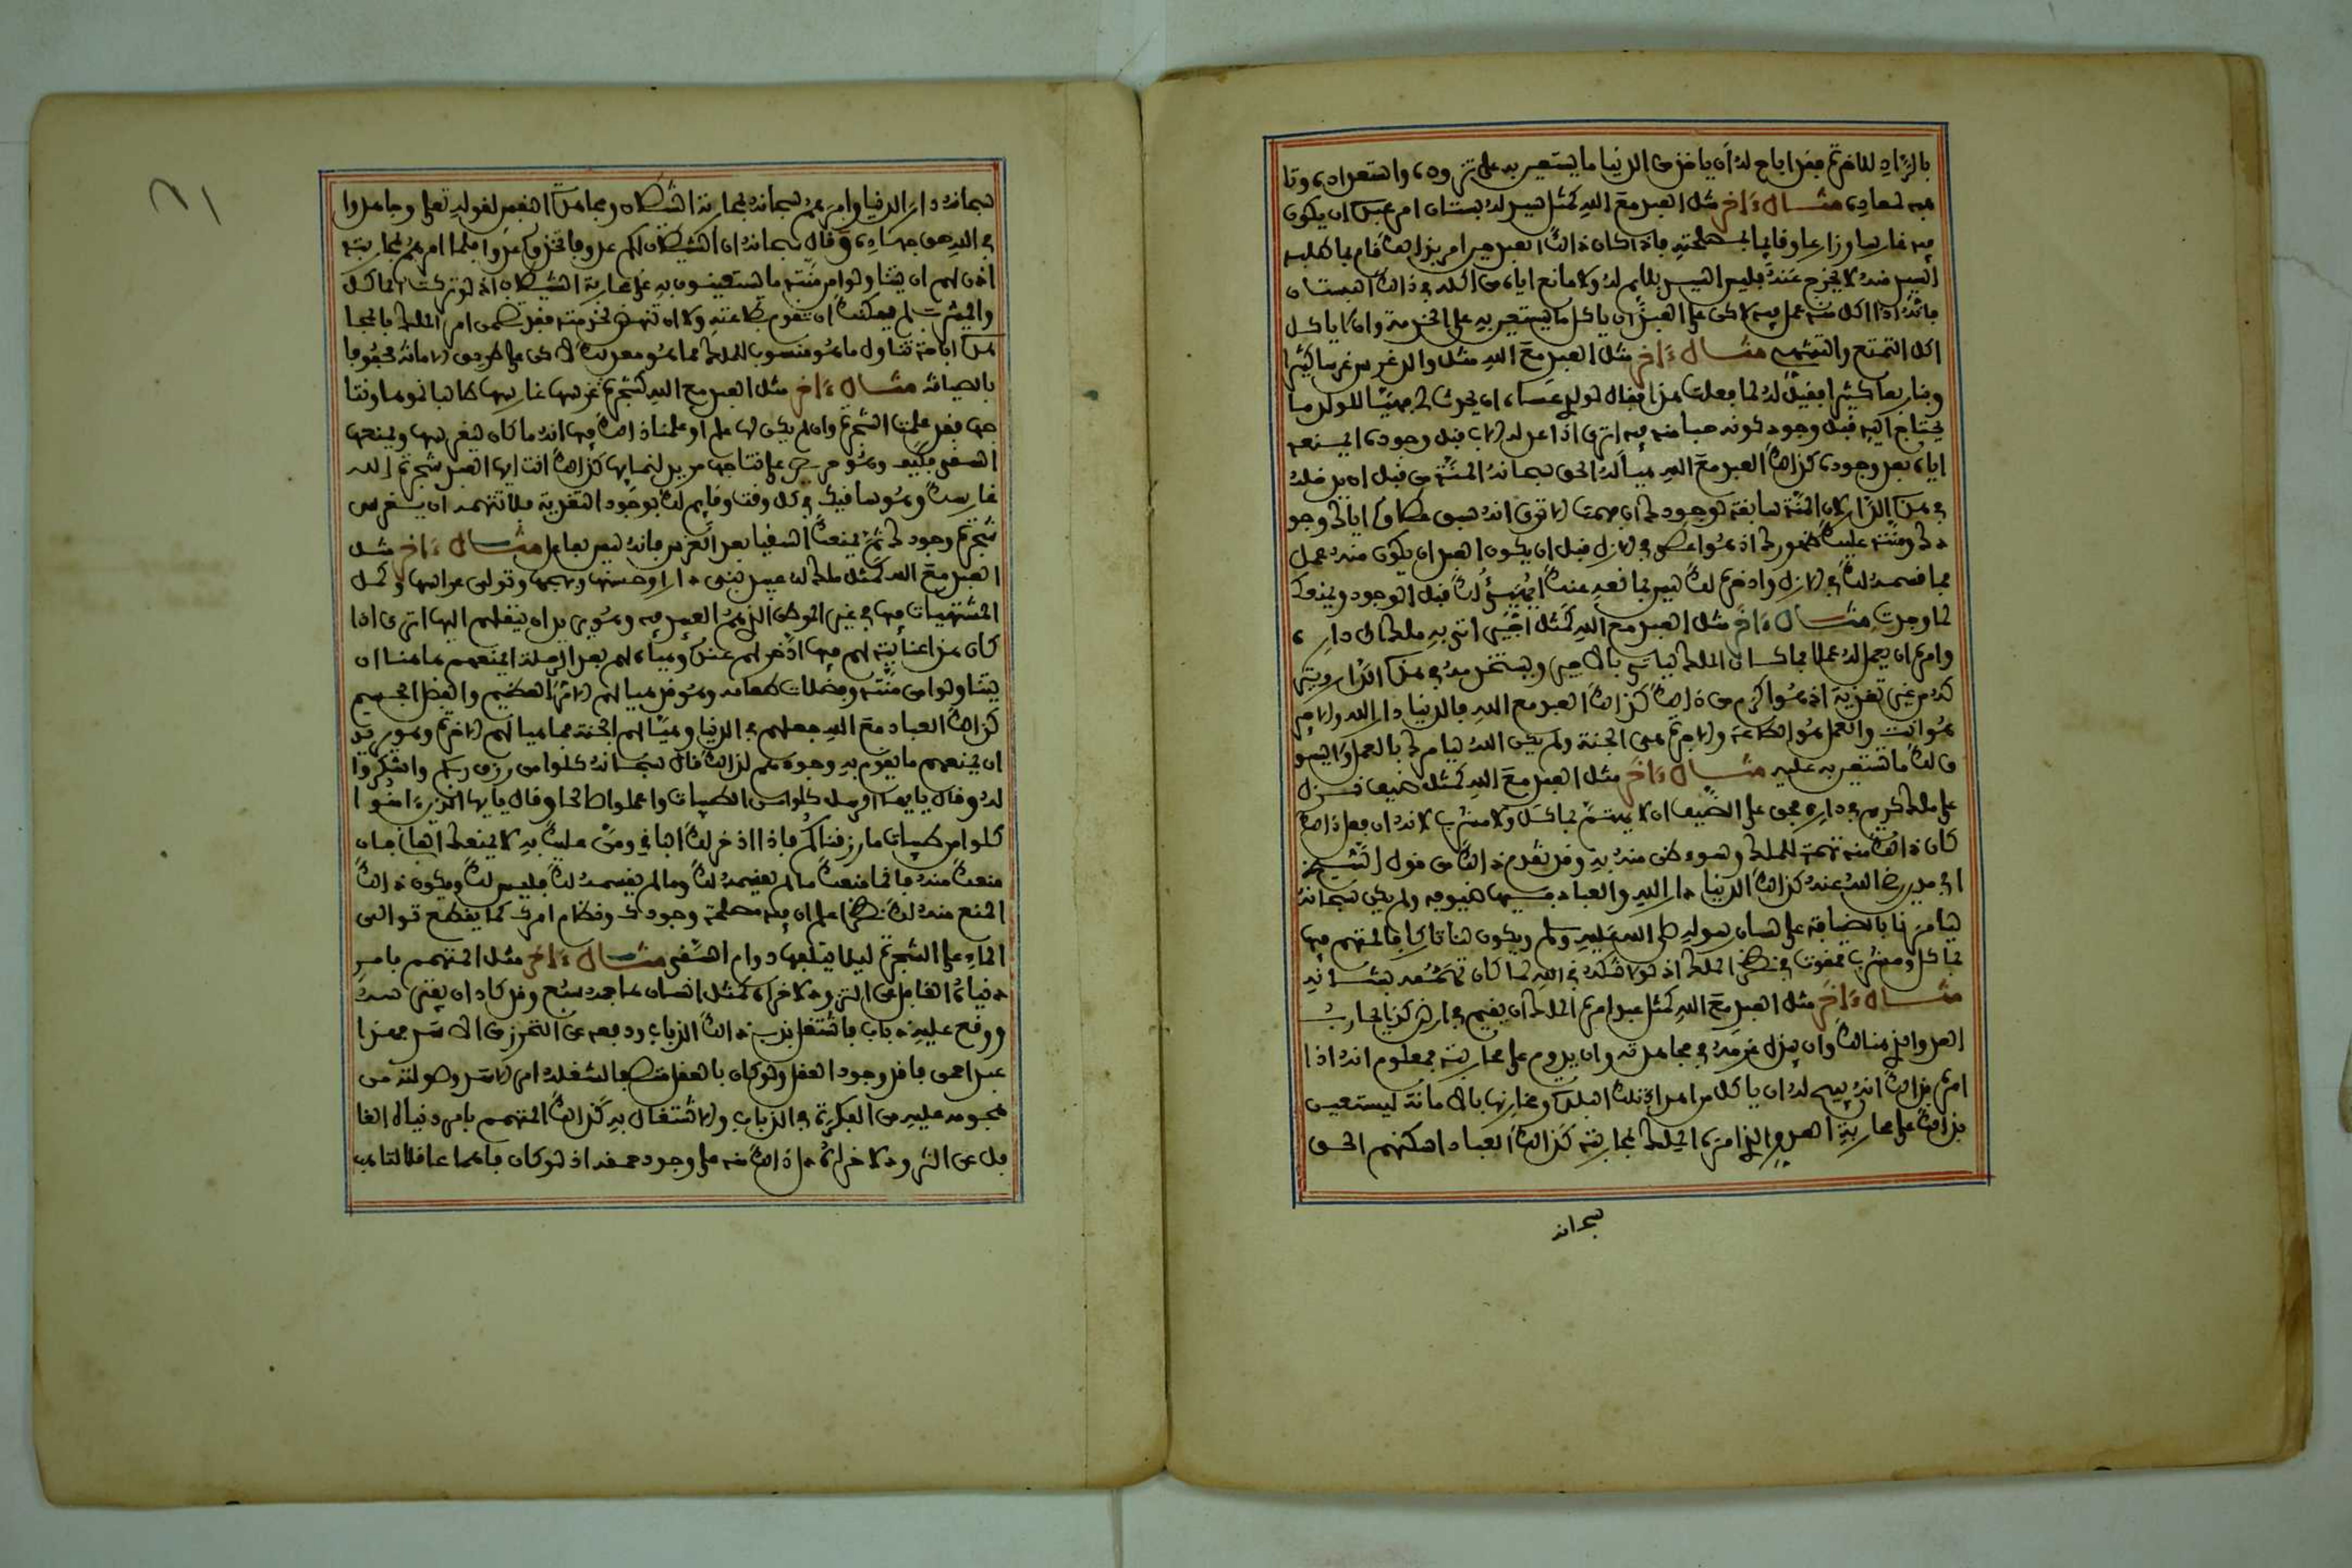 بالزاد للاخرة فقد اباح له أن ياخذ من الدنيا ما يستعين به على تزوده واستعداده وتا
هبه لمعاده مثال ءاخر مثل العبد مع الله كمثل سيد له بستان امر عبده ان يكون
فيه غارسا وزارعا وقايما بمصلحته فاذا كان ذالك العبد حين امر بذالك قام بما طلبه
السيد منه لا يخرج عنه فليس السيد بلايم له ولا مانع اياه من اكله في ذالك البستان
فانه اذا اكل منه عمل فيه لاكن على العبد ان ياكل ما يستعين به على الخدمة وان لا ياكل
اكل التمتع والتشهي مثال ءاخر مثل العبد مع الله مثل والد غرس غرسا كثيرا
وبنا ربعا كثيرا فقيل له لما فعلت هذا فقال لولد عساه ان يحدث لي فهيأ للولد ما
يحتاج اليه قبل وجود كونه حبا منه فيه اترى اذا اعد له الاب قبل وجوده ايمنعه
اياه بعد وجوده كذالك العبد مع الله هيأ له الحق سبحانه المنة من قبل ان يدخله
في هذه الدار لان المنة سابقة لوجودك ان فهمت الا ترى انه سبق عطاؤه اياك وجو
دك ومنته عليك ظهورك اذ هو اعطى في الازل قبل ان يكون العبد او يكون منه عمل
فما قسمه لك في الازل وادخره لك ليس بمانعه عنك ايهيئ لك قبل الوجود ويمنعك
لما وجدت مثال ءاخر مثل العبد مع الله كمثل اجير اتى به ملك الى داره
وامره ان يعمل له عملا فما كان الملك لياتي بالاجير ويستخدمه في هذه الدار ويتر
كه من غير تغذية اذ هو اكرم من ذالك كذالك العبد مع الله فالدنيا دار الله والاجير
هو انت والعمل هو الطاعة والاجرة هي الجنة ولم يكن الله ليامرك بالعمل ولا يسو
ق لك ما تستعين به عليه مثال ءاخر مثل العبد مع الله كمثل ضيف نزل
على ملك كريم في داره فحق على الضيف ان لا يهتم بماكل ولا مشرب لانه ان فعل ذالك
كان ذالك منه تهمة للملك وسوء ظن منه به وقد تقدم ذالك من قول الشيخ
ابي مدين رضي الله عنه كذالك الدنيا دار الله والعباد فيها ضيوفه ولم يكن سبحانه
ليامرنا بالضيافة على لسان رسوله صلى الله عليه وسلم ويكون هنا تاركا فالمتهم فيها
بماكل ومشرب ممقوت في نظر الملك اذ لولا شكه في الله لما كان تهممه بشانه
مثال ءاخر مثل العبد مع الله كمثل عبد امره الملك أن يقيم في ارض كذا يحارب
العدو الذي هنالك وان يبذل عزمه في مجاهدته وان يدوم على محاربته فمعلوم انه اذا
امره بذالك انه يبيح له ان ياكل من اهراء تلك البلد ومخازنها بالامانة ليستعين
بذالك على محاربة العدو الذي امره الملك بمحاربته كذالك العباد اسكنهم الحق
سبحانه
سبحانه دار الدنيا وامرهم سبحانه بمحاربة الشيطان ومجاهدة النفس لقوله تعلى وجاهدوا
في الله حق جهاده وقال سبحانه ان الشيطان لكم عدو فاتخذوه عدوا فلما امرهم بمحاربته
اذن لهم ان يتناولوا من منته ما يستعينون به على محاربة الشيطان اذ لو تركت الماكل
والمشرب لم يمكنك ان تقوم بطاعته ولا ان تنهض لخدمته فقد تضمن امر الملك بالمجا
هدة اباحة تناول ما هو منسوب للملك مما هو معد لك لاكن على طريق الامانة محفوفا
بالصيانة مثال ءاخر مثل العبد مع الله كشجرة غرسها غارسها طالبا نموها ونتا
جها فقد علمت الشجرة وان لم يكن لها علم او علمنا ذالك فيها انه ما كان ليغرسها ويمنعها
السقي فكيف وهو حريص على نتاجها مريد لنمايها كذالك انت ايها العبد شجرة الله
غارسك وهو ساقيك في كل وقت وقايم لك بوجود التغذية فلا تتهمه ان يغرس
شجرة وجودك ثم يمنعك السقيا بعد الغرس فانه ليس بغافل مثال ءاخر مثل
العبد مع الله كمثل ملك له عبيد بنى دارا وحسنها وبهجها وتولى غراسها وكمل
المشتهيات فيها في غير الموطن الذي هم العبيد فيه وهو يريد ان ينقلهم اليها اترى اذا
كان هذا عنايته لهم فيما ادخر لهم عنده وهيأه لهم بعد الرحلة ايمنعهم ها هنا ان
يتناولوا من منته وفضلات طعامه وهو قد هيا لهم الامر العظيم والفضل الجسيم
كذالك العباد مع الله جعلهم في الدنيا وهيأ لهم الجنة فما هيا لهم الاخرة وهو يريد
ان يمنعهم ما يقوم به وجودهم لذالك قال سبحانه كلوا من رزق ربكم واشكروا
له وقال يا يها الرسل كلوا من الطيبات واعملوا صالحا وقال يا يها الذين ءامنوا
كلوا من طيبات ما رزقناكم فاذا ادخر لك الباقي ومن عليك به لا يمنعك الفاني فان
منعك منه فانما منعك ما لم يقسمه لك وما لم يقسمه لك فليس لك ويكون ذالك
المنع منه لك نظرا علم ان فيه مصلحة وجودك ونظام امرك كما يقطع توالي
الماء على الشجرة ليلا يتلفها دوام السقي مثال ءاخر مثل المتهمم بامر
دنياه الغافل عن التزود لاخراه كمثل انسان فاجه سبع وقد كاد ان يفترسه
ووقع عليه ذباب فاشتغل بذب ذالك الذباب ودفعه عن التحرز من الاسد فهذا
عبد احمق فاقد وجود العقل ولو كان بالعقل متصفا لشغله امر الاسد وصولته من
هجومه عليه عن الفكرة في الذباب والاشتغال به كذالك المتهمم بامر دنياه الغا
فل عن التزود لاخراه دل ذالك منه على وجود حمقه اذ لو كان فاهما عاقلا لتاهب